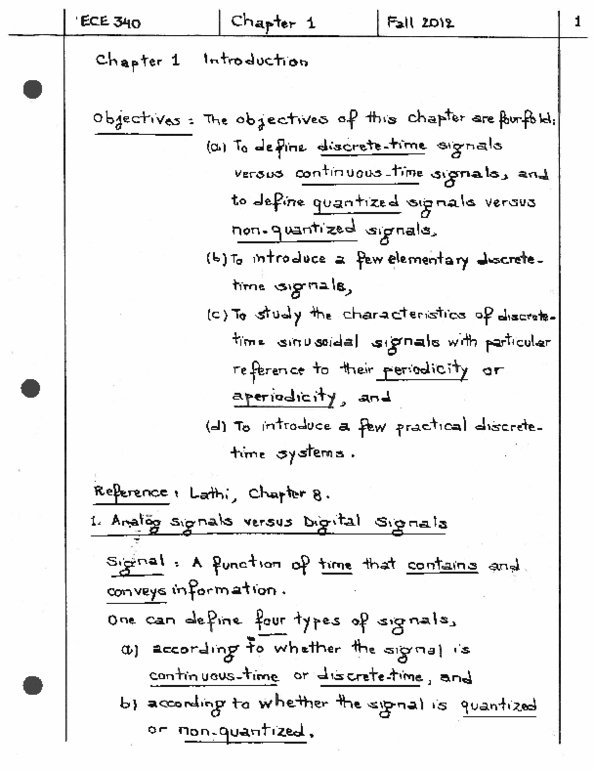 ECE 340 Chapter 1 Fall 2012 1
Chapter 1 Introduction
Objectives: The objectives of this chapter are fourfold:
(a) To define discrete-time signals
versus continuous-time signals, and
to define quantized signals versus
non-quantized signals,
(b) To introduce a few elementary discrete-
time signals,
(c) To study the characteristics of discrete-
time sinusoidal signals with particular
reference to their periodicity or
aperiodicity, and
(d) To introduce a few practical discrete-
time systems.
Reference: Lathi, Chapter 8.
1. Analog signals versus Digital Signals
Signal: A function of time that contains and
conveys information.
One can define four types of signals,
a) according to whether the signal is
continuous-time or discrete-time, and
b) according to whether the signal is quantized
or non-quantized.